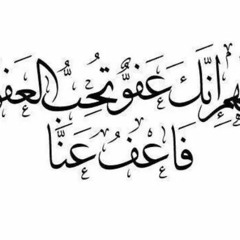 هم إنَّكَ عَفوٌّ تُحبُّ العَفو
فَاعْفُ عَنَّا